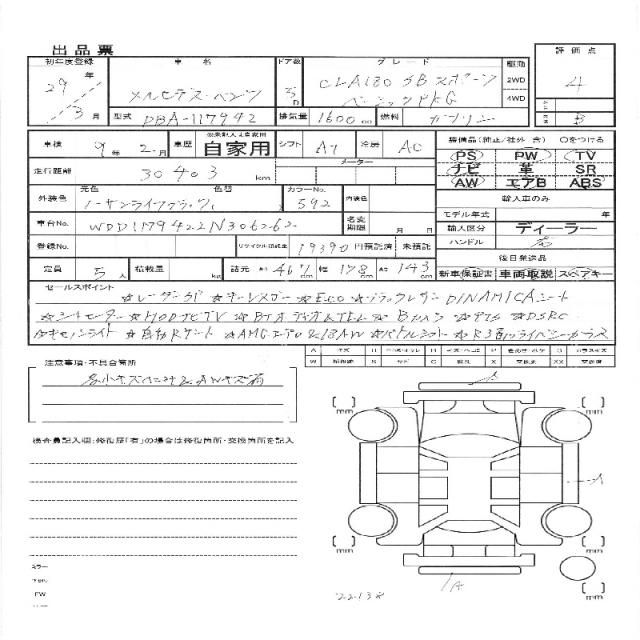 出品票
初年度登録 車名 ドア数 グレード 駆動 評価点
29年 メルセデス・ベンツ 5D CLA180 SB スポーツ 2WD 4
3月 ベーシックPKG 4WD
型式 DBA-117942 排気量 1600cc 燃料 ガソリン B
車検 9年2月 車歴 自家用 シフト AT 冷房 AC 装備品(純正/社外 含) ○をつける
走行距離 30403 km メーター PS PW TV
ナビ 革 SR
外装色 元色 色替 カラーNo. 592 内装色 AW エアB ABS
ノーザンライツブラック 輸入車のみ
車台No. WDD1179422N306262 名変期限 月 日 モデル年式 年
登録No. リサイクル預託金 19390 円預託済 未預託 輸入区分 ディーラー
ハンドル 右
定員 5人 積載量 kg 諸元 長さ 467 幅 178 高さ 143 後日発送品
新車保証書 車両取説 スペアキー
セールスポイント ☆レーダーSP ☆キーレスゴー ☆ECO ☆ブラックレザーDINAMICAシート
☆シートヒーター ☆HDDナビTV ☆BTオーディオ&TEL ☆Bカメラ ☆PTS ☆DSRC
☆キセノンライト ☆自動Rゲート ☆AMGエアロ&18AW ☆パドルシフト ☆R3面プライバシーガラス
注意事項・不具合箇所
各小キズヘコミ&AWキズ有
検査員記入欄:修復歴「有」の場合は修復箇所・交換箇所を記入
A
mm mm
A
mm mm
A
22138